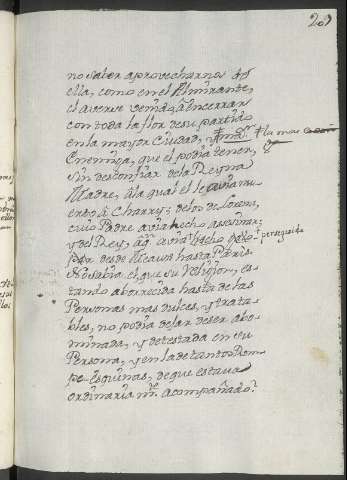 209
no saber aprovecharnos de
ella, como en el Almirante,
el averse venido, à encerrar
con toda la flor de su partido
en la mayor Ciudad, y la mas
Enemiga, que el podia tener, y
sin desconfiar de la Reyna
Madre, à la qual el le avia mu-
erto à Charry; de los de Lorena,
cuio Padre avia hecho assesinar;
y del Rey, à quien avia hecho perseguida
desde Meaux hasta Paris.
No sabia el que su Religion, es-
tando aborrecida hasta de las
Personas mas dulces, y trata-
bles, no podia dejar de ser abo-
minada, y detestada en su
Persona, y en la de tantos Rom-
pe-Esquinas, de que estava
ordinaria mte. acompañado?